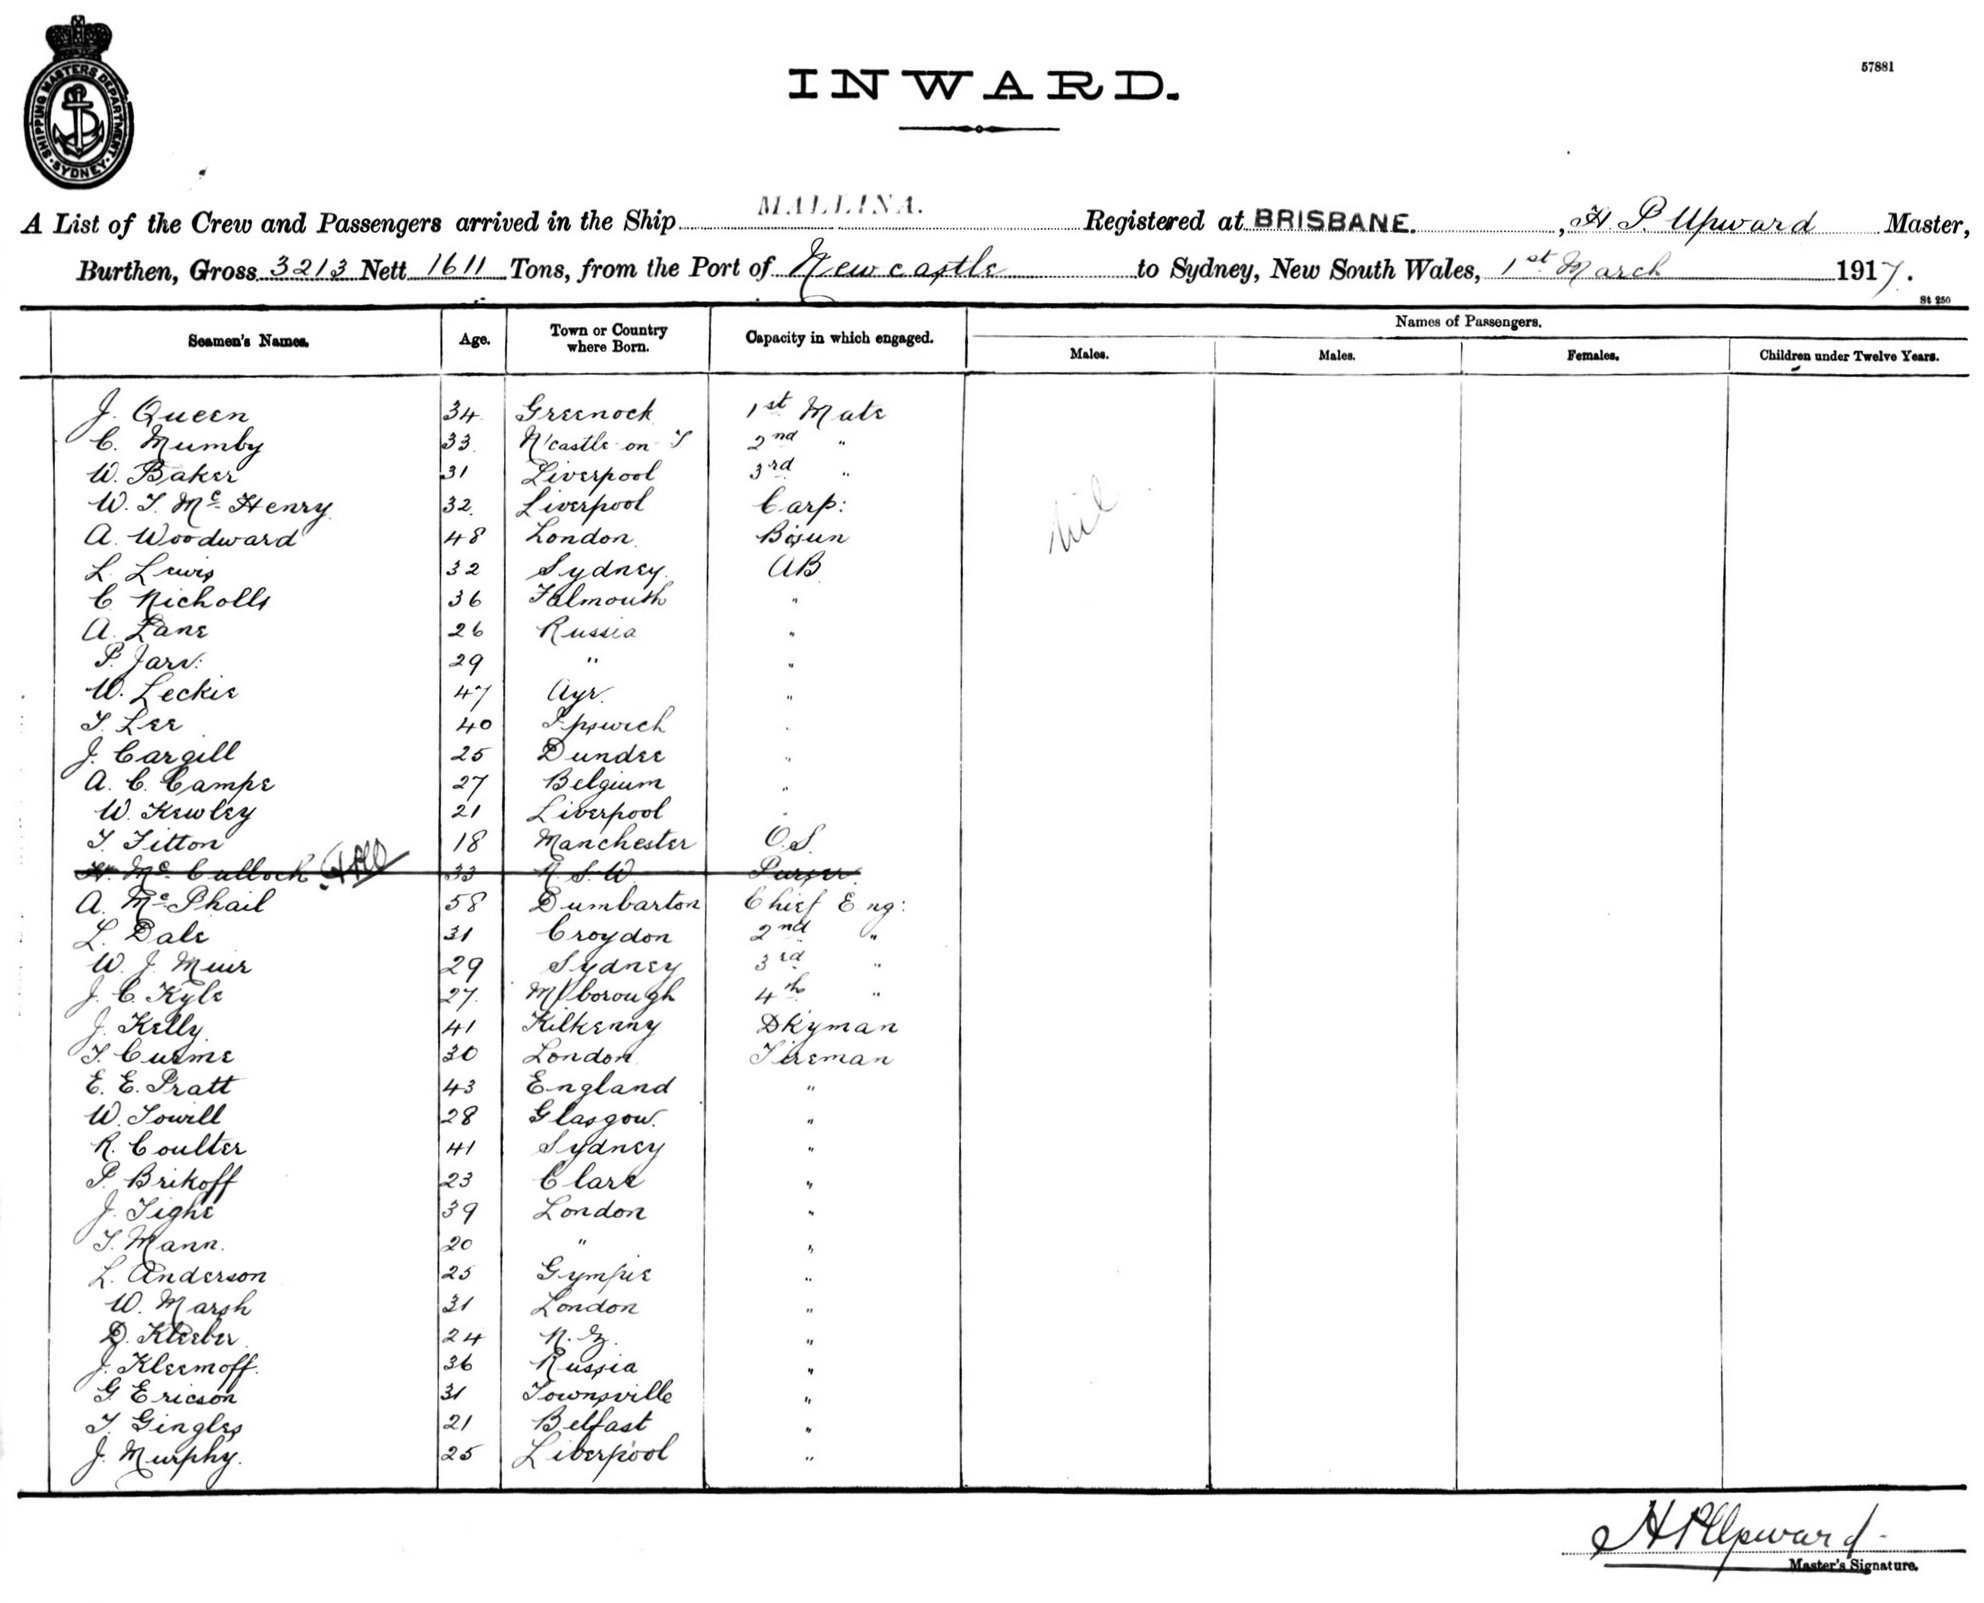 SHIPPING MASTERS DEPARTMENT · SYDNEY ·
57881
INWARD.
A List of the Crew and Passengers arrived in the Ship MALLINA. Registered at BRISBANE. , H. P. Upward Master,
Burthen, Gross 3213 Nett 1611 Tons, from the Port of Newcastle to Sydney, New South Wales, 1st March 1917.
St 250
Seamen's Names. Age. Town or Country where Born. Capacity in which engaged. Names of Passengers.
Males. Males. Females. Children under Twelve Years.
J. Queen 34 Greenock 1st Mate
C. Mumby 33 N'castle-on-T 2nd "
W. Baker 31 Liverpool 3rd "
W. T. McHenry 32 Liverpool Carp:
nil
A. Woodward 48 London Bosun
L. Lewis 32 Sydney AB
C. Nicholls 36 Falmouth "
A. Lane 26 Russia "
P. Jarv: 29 " "
W. Leckie 47 Ayr. "
T. Lee 40 Ipswich "
J. Cargill 25 Dundee "
A. C. Campe 27 Belgium "
W. Kewley 21 Liverpool "
T. Titton 18 Manchester O.S.
H. McCullock 33 N.S.W. Purser
A. McPhail 58 Dumbarton Chief Eng:
L. Dale 31 Croydon 2nd "
W. J. Muir 29 Sydney 3rd "
J. C. Kyle 27 M'borough 4th "
J. Kelly 41 Kilkenny Dkyman
T. Curme 30 London Fireman
E. E. Pratt 43 England "
W. Towill 28 Glasgow. "
R. Coulter 41 Sydney "
P. Brikoff 23 Clare "
J. Tighe 39 London "
T. Mann. 20 " "
L. Anderson 25 Gympie "
W. Marsh 31 London "
D. Kleeber 24 N.Z. "
J. Kleemoff. 36 Russia "
G Ericson 31 Townsville "
T. Gingles 21 Belfast "
J. Murphy. 25 Liverpool "
H P Upward
Master's Signature.